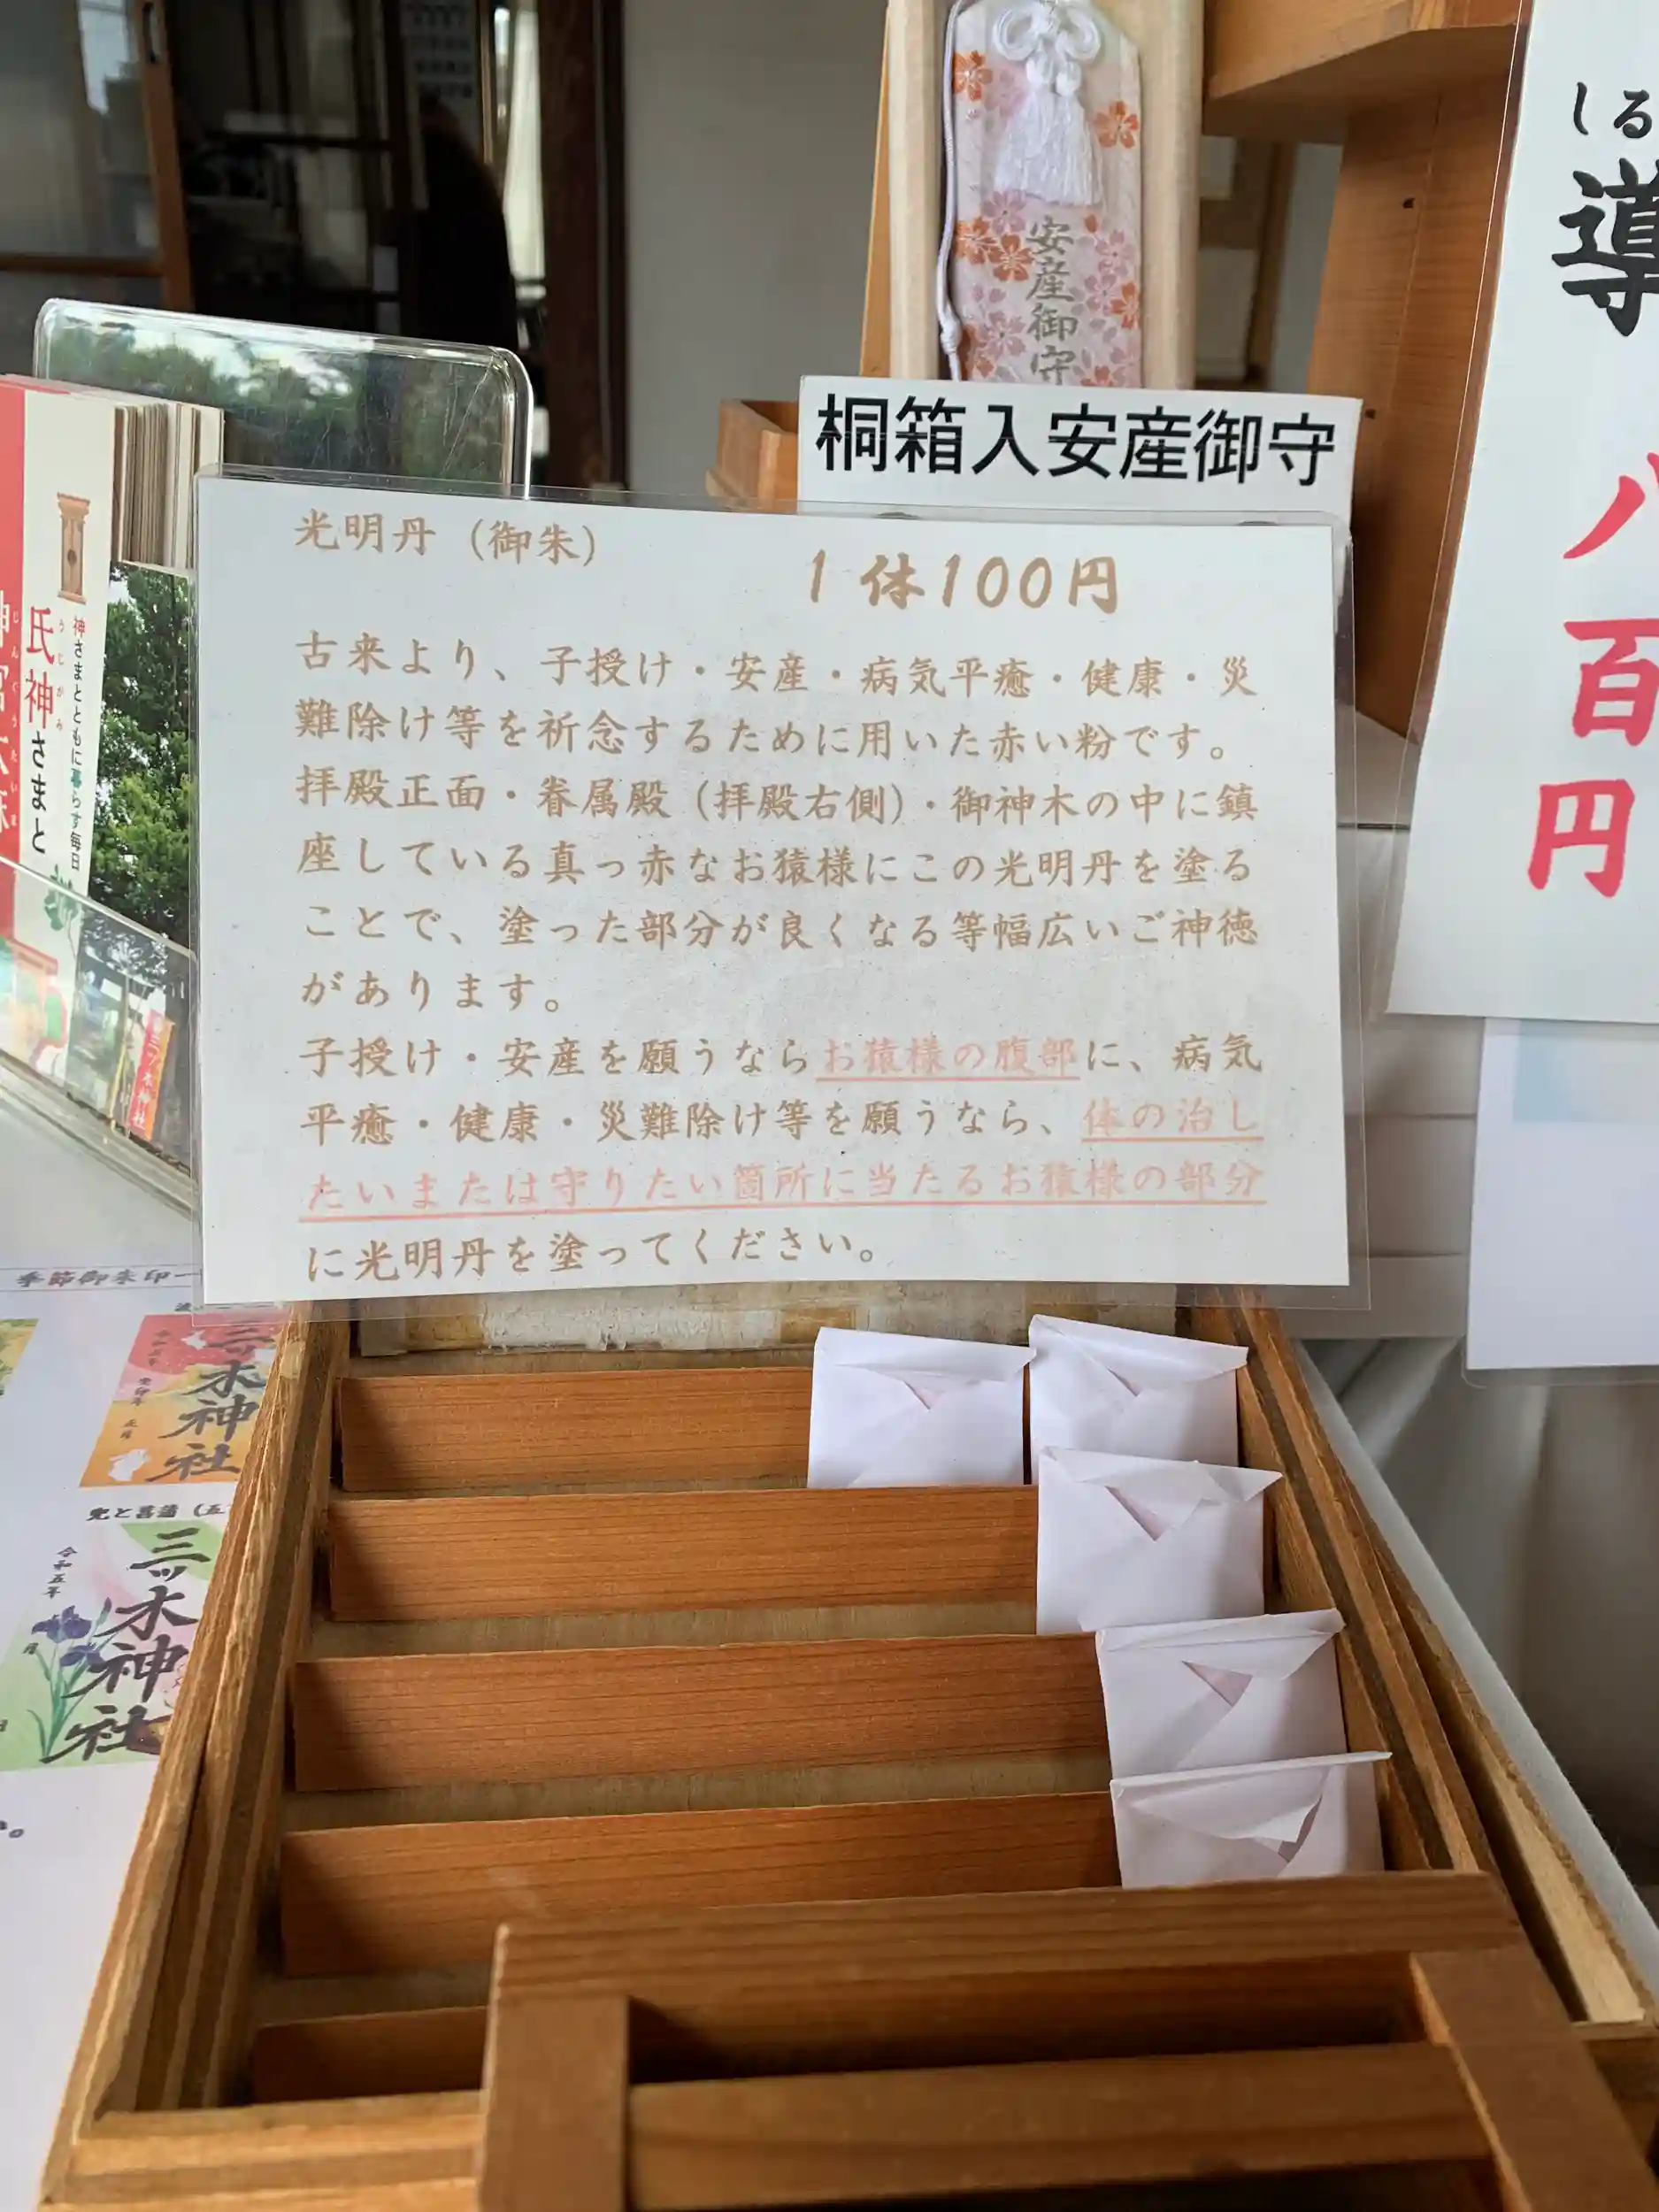 安産御守
桐箱入安産御守
光明丹（御朱）
1体100円
古来より、子授け・安産・病気平癒・健康・災
難除け等を祈念するために用いた赤い粉です。
拝殿正面・眷属殿（拝殿右側）・御神木の中に鎮
座している真っ赤なお猿様にこの光明丹を塗る
ことで、塗った部分が良くなる等幅広いご神徳
があります。
子授け・安産を願うならお猿様の腹部に、病気
平癒・健康・災難除け等を願うなら、体の治し
たいまたは守りたい箇所に当たるお猿様の部分
に光明丹を塗ってください。
しる
導
八百円
神さまとともに暮らす毎日
氏神さまと
うじがみ
三ツ木神社
季節御朱印一
三ツ木神社
令和五年
三ツ木神社